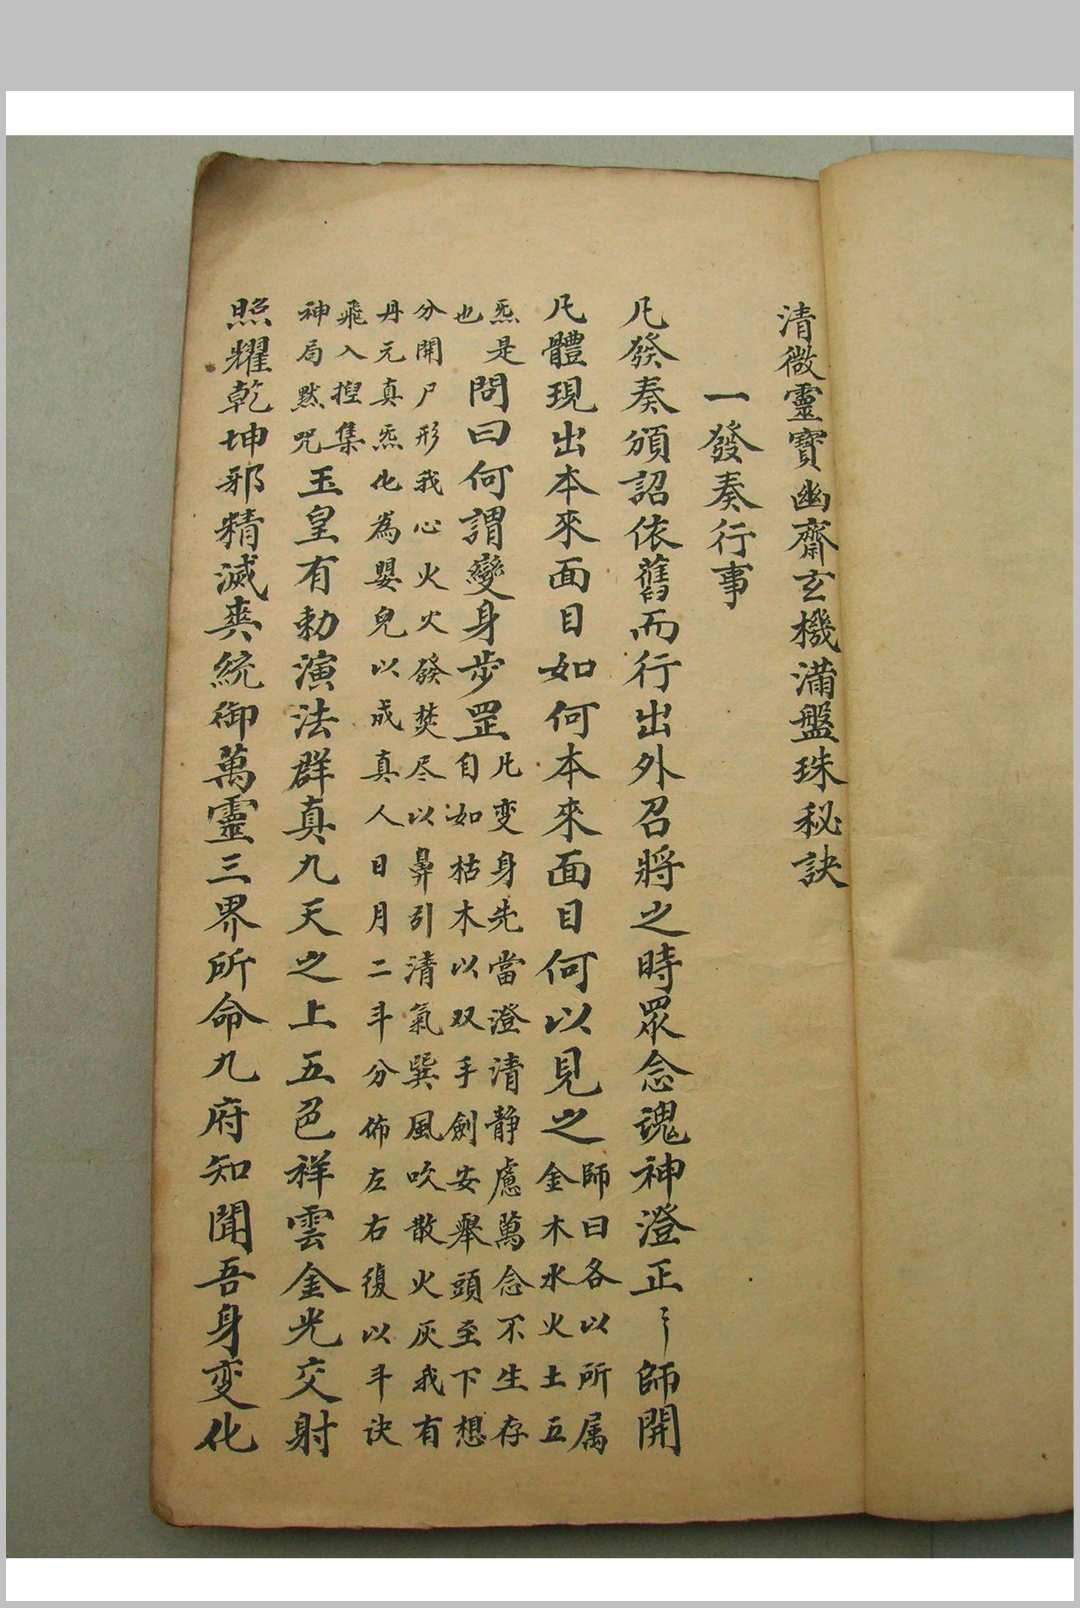 清微靈寶幽齋玄機滿盤珠秘訣
一發奏行事
凡發奏頒詔依舊而行出外召將之時眾念魂神澄正〻師開
凡體現出本來面目如何本來面目何以見之師曰各以所属
金木水火土五
炁是
也
問曰何謂變身步罡凡变身先當澄清静慮萬念不生存
自如枯木以双手劍安舉頭至下想
分開尸形我心火火發焚尽以鼻引清氣巽風吹散火灰我有
丹元真炁化為嬰兒以成真人日月二斗分佈左右復以斗诀
飛入揑集
神局默咒
玉皇有勅演法群真九天之上五色祥雲金光交射
照耀乾坤邪精滅爽統御萬靈三界所命九府知聞吾身变化